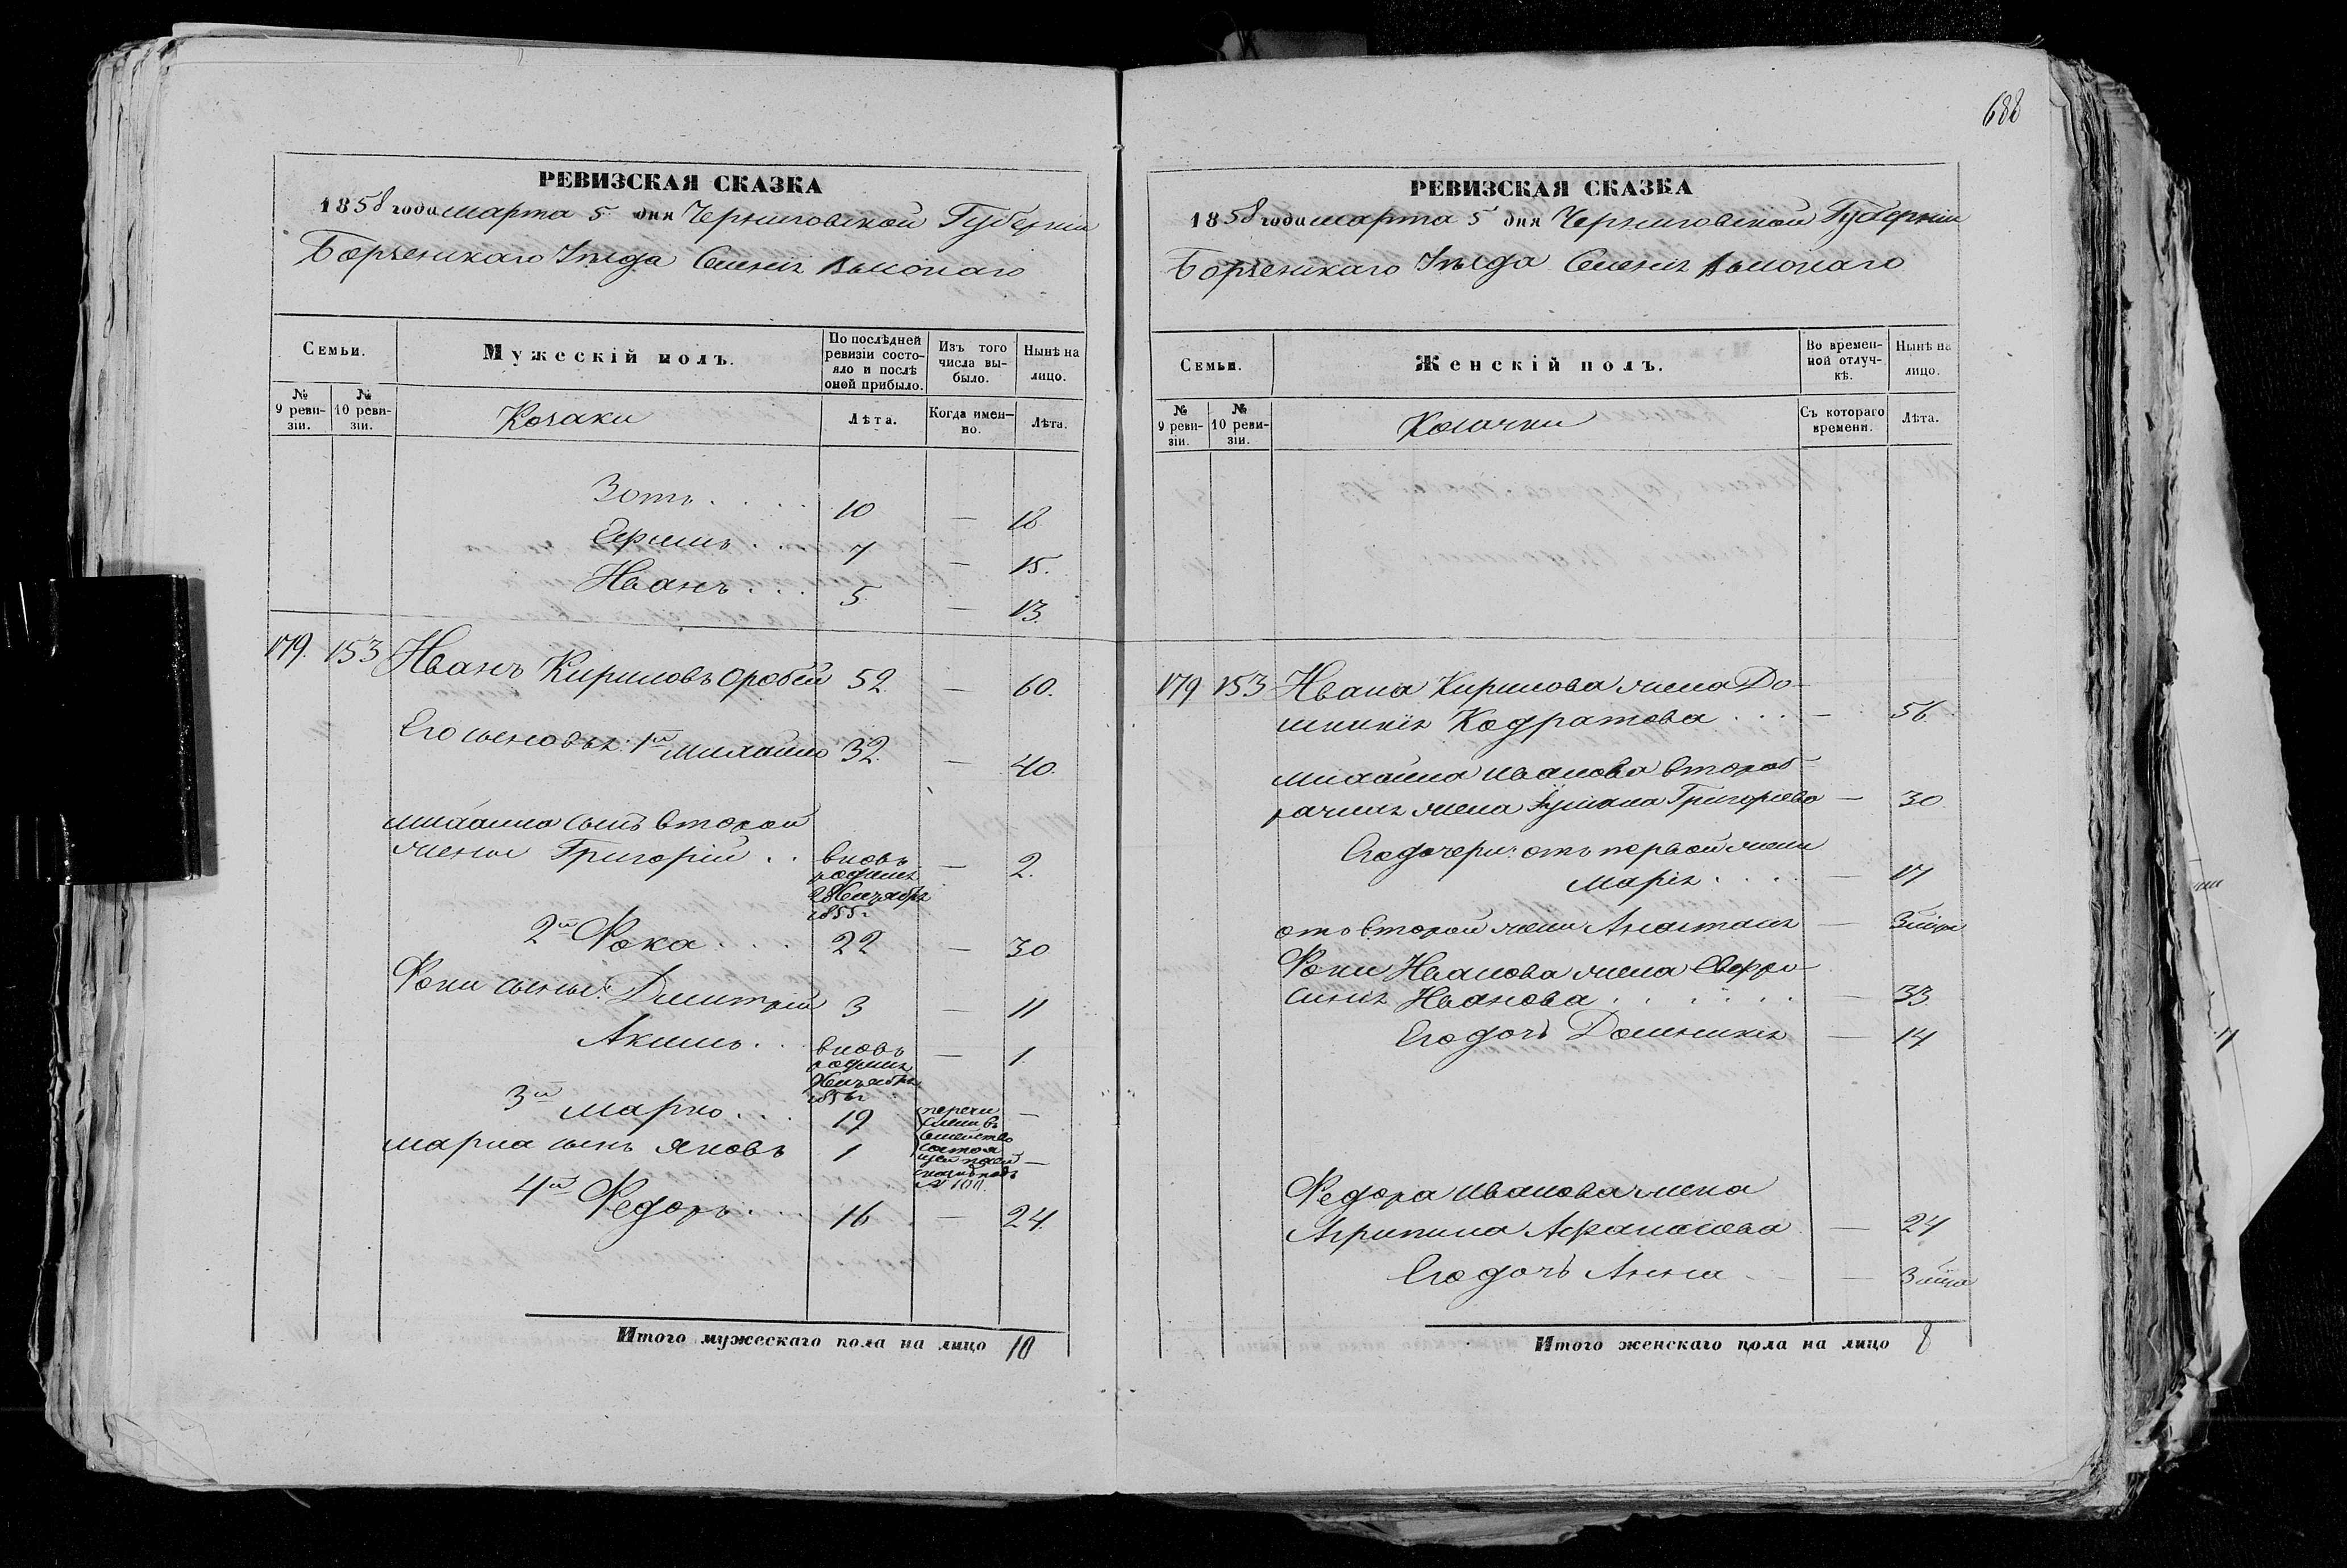 РЕВИЗСКАЯ СКАЗКА
1858 года марта 5 дня Черниговской Губерніи
Борзенскаго Уезда
Семьи.
Мужескій полъ.
По послѣдней ревизіи состояло и послѣ оной прибыло.
Изъ того числа выбыло.
Нынѣ на лицо.
№ 9 ревизіи.
№ 10 ревизіи.
Козаки
Лѣта.
Когда именно.
Лѣта.
Зотъ . . . . 10 — 18
Ефимъ . . 7 — 15.
Иванъ . . . 5. — 13.
179. 153 Иванъ Кириловъ Оробей 52. — 60.
Его сыновья: 1й Михайло 32. — 40.
Михайла сынъ второй
жены Григорій . . вновь — 2.
родился
1855 г
2й Фока . . . . 22 — 30
Фоки сынья: Дмитрій 3 — 11
Акимъ . . вновь — 1.
родился
3й Марко . . . 19 перечи —
Марка сынъ Яковъ 1 —
семейство
4й Федоръ . . . 16 — 24.
Итого мужескаго пола на лицо 10
688
РЕВИЗСКАЯ СКАЗКА
1858 года марта 5 дня Черниговской Губерніи
Борзенскаго Уезда
Семьи.
Женскій полъ.
Во временной отлучкѣ.
Нынѣ на лицо.
№ 9 ревизіи.
№ 10 ревизіи.
Козачки
Съ котораго времени.
Лѣта.
179 153 Ивана Кирилова жена До-
мникія Кодратова . . . — 56.
Михайла Иванова второб-
рачная жена Гришорьева — 30.
Его дочери: отъ первой жены
Марія . . . . — 17
отъ второй жены Анастасія —
Фоки Иванова жена Евфро-
синія Иванова . . . . . . — 33.
Его дочь Доминикія — 14
Федора Иванова жена
Агрипина Афанасова — 24
Его дочь Анна —
Итого женскаго пола на лицо 8